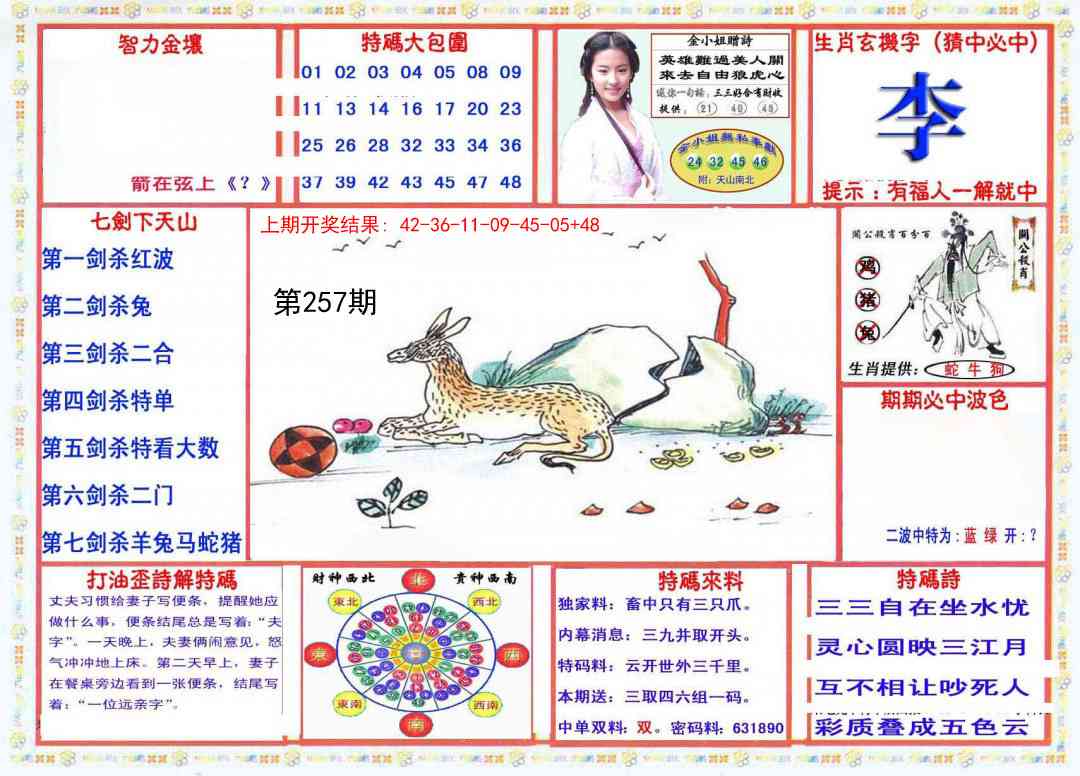 智力金壤
箭在弦上《？》
特碼大包圍
01 02 03 04 05 08 09
11 13 14 16 17 20 23
25 26 28 32 33 34 36
37 39 42 43 45 47 48
金小姐赠詩
英雄難過美人關
來去自由狼虎心
送你一句話，三三好合有財收
提供：(21) (40) (45)
金小姐親私奉獻
24 32 45 46
附：天山南北
生肖玄機字（猜中必中）
李
提示：有福人一解就中
七劍下天山
第一剑杀红波
第二剑杀兔
第三剑杀二合
第四剑杀特单
第五剑杀特看大数
第六剑杀二门
第七剑杀羊兔马蛇猪
上期开奖结果: 42-36-11-09-45-05+48
第257期
關公殺肖百分百
關公殺肖
鸡
猪
兔
生肖提供: 蛇 牛 狗
期期必中波色
二波中特为：蓝 绿 开：？
打油歪詩解特碼
丈夫习惯给妻子写便条，提醒她应
做什么事，便条结尾总是写着：“夫
字”。一天晚上，夫妻俩闹意见，怒
气冲冲地上床。第二天早上，妻子
在餐桌旁边看到一张便条，结尾写
着：“一位远亲字”。
財神西北 貴神西南
北
東北 西北
東 西
東南 西南
南
特碼來料
独家料：畜中只有三只爪。
内幕消息：三九并取开头。
特码料：云开世外三千里。
本期送：三取四六组一码。
中单双料：双。密码料：631890
特碼詩
三三自在坐水忧
灵心圆映三江月
互不相让吵死人
彩质叠成五色云